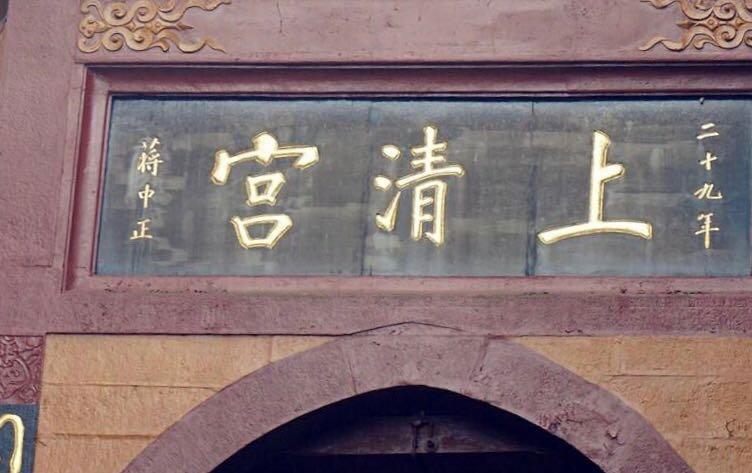 二十九年
上清宫
蔣中正